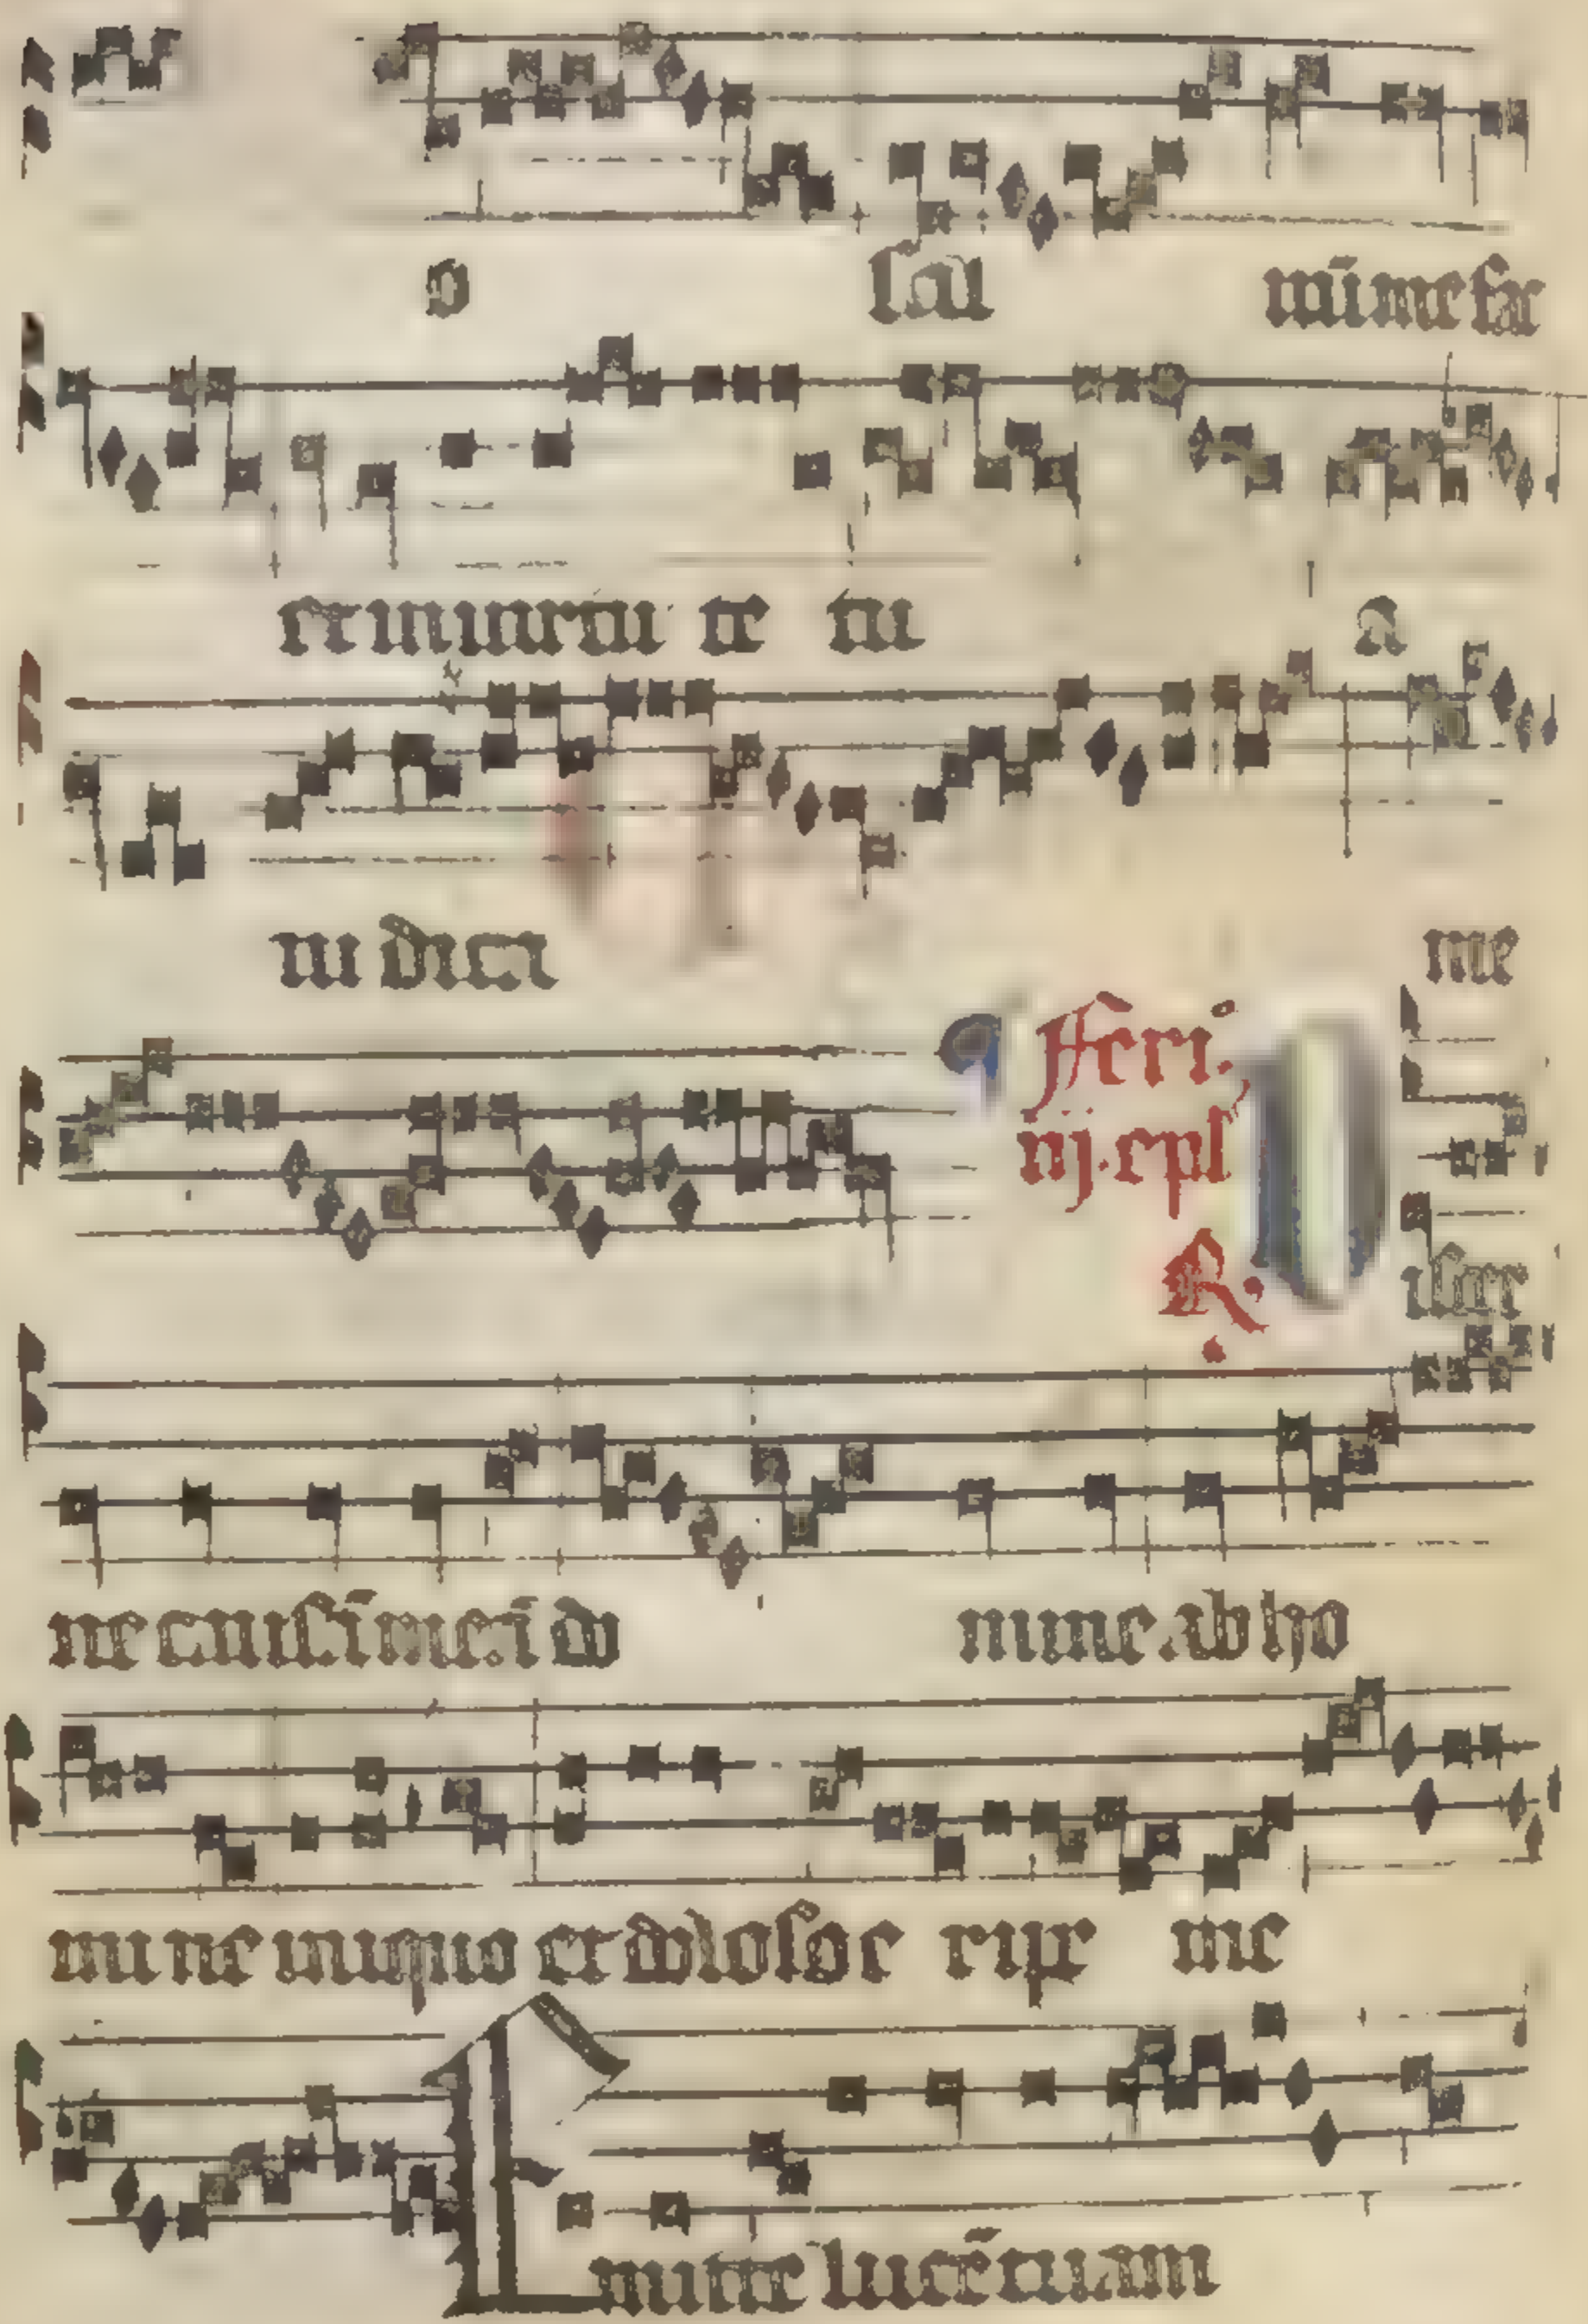 o sal uū me fac
et in uirtu te tu a
iu dica me
Feri.
iij. epl
R. D iscer
ne causā meā do mine ab ho
mi ne iniquo et doloso e ripe me
E mitte lucē tuam